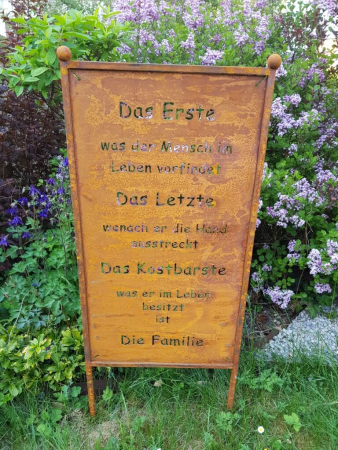 Das Erste
was der Mensch im
Leben vorfindet
Das Letzte
wonach er die Hand
ausstreckt
Das Kostbarste
was er im Leben
besitzt
ist
Die Familie